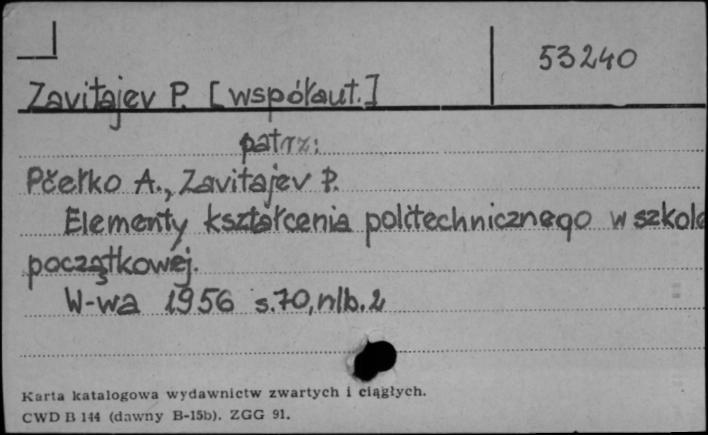 53240
Zavitajev P. [współaut.]
patrz:
Pčełko A., Zavitajev P.
Elementy kształcenia politechnicznego w szkole
początkowej.
W-wa 1956 s.70, nlb.2
Karta katalogowa wydawnictw zwartych i ciągłych.
CWD B 144 (dawny B-15b). ZGG 91.